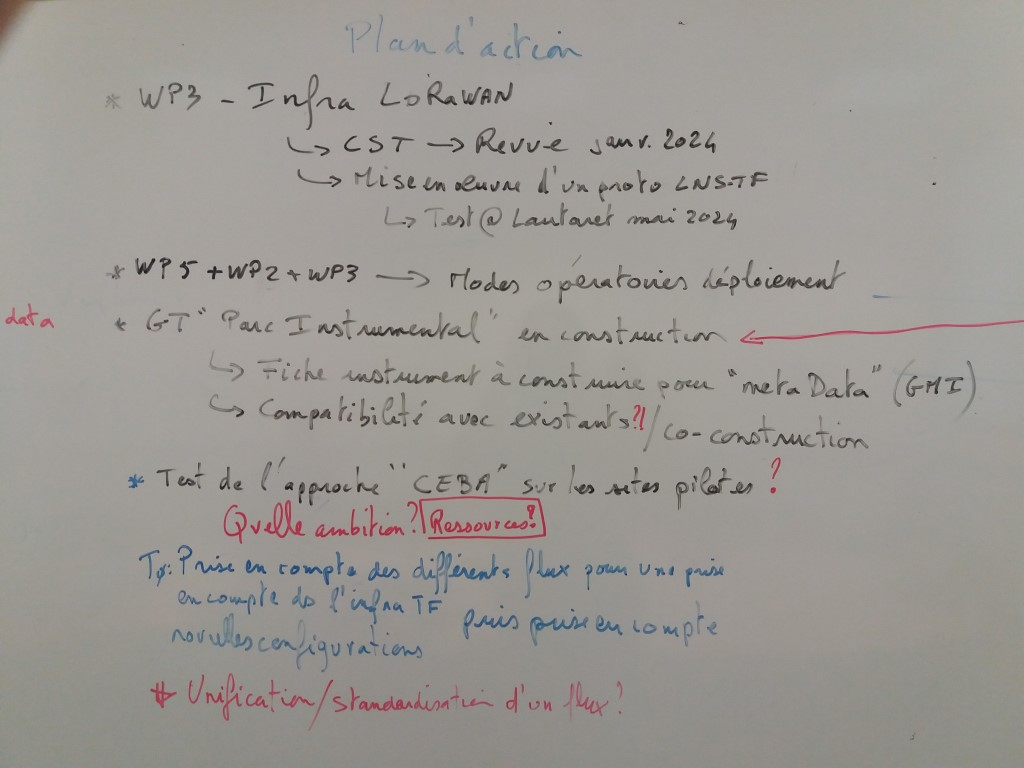 Plan d'action
* WP3 - Infra LoRaWAN
↳ CST → Revue janv. 2024
↳ Mise en œuvre d'un proto LNS-TF
↳ Test @ Lautaret mai 2024
* WP5 + WP2 + WP3 → Modes opératoires déploiement
data * GT "Parc Instrumental" en construction
↳ Fiche instrument à construire pour "meta Data" (GMI)
↳ Compatibilité avec existants?! / co-construction
* Test de l'approche "CEBA" sur les sites pilotes ?
Quelle ambition? Ressources?
Tø: Prise en compte des différents flux pour une prise
en compte de l'infra TF puis prise en compte
nouvelles configurations
# Unification/standardisation d'un flux?